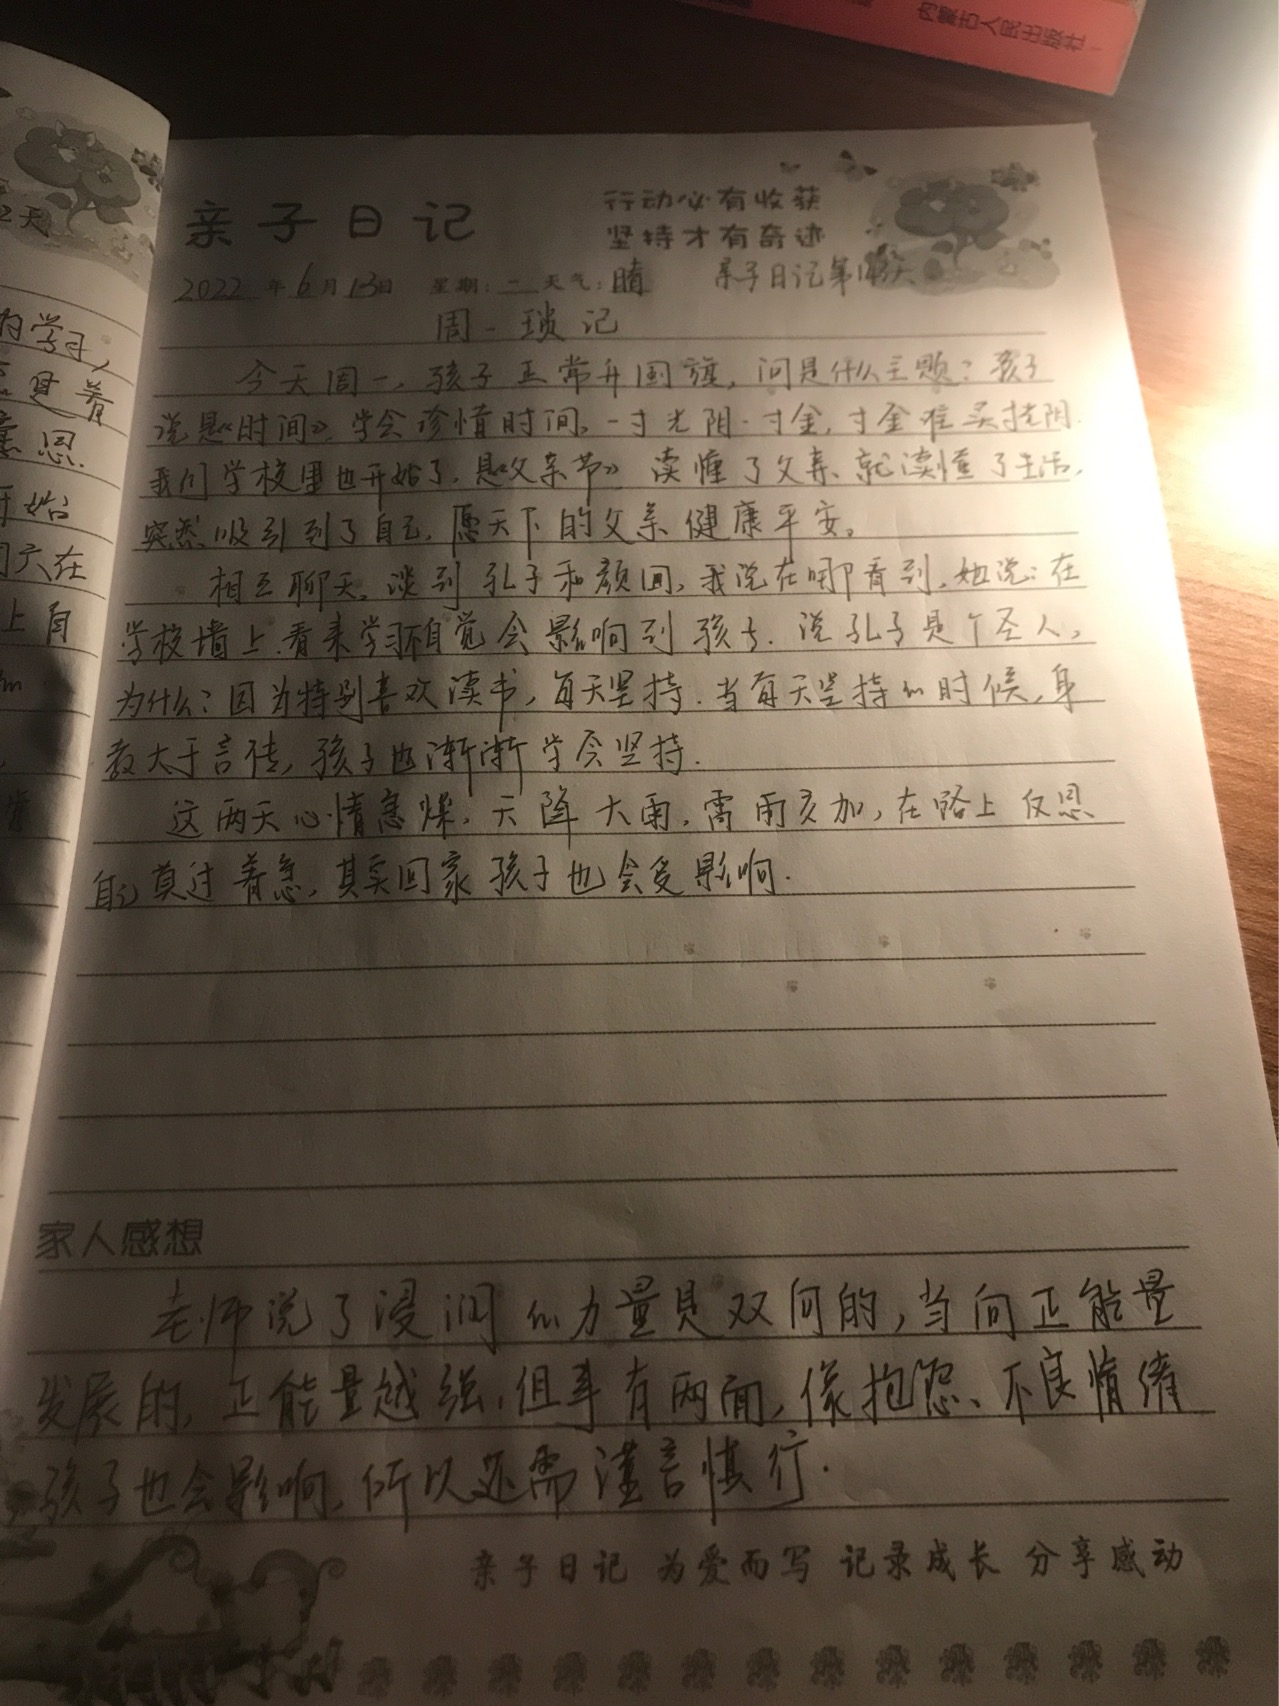 内蒙古人民出版社
2天
的学习,
是着
恩
开始
周六在
上自
亲子日记
行动必有收获
坚持才有奇迹
2022年6月13日 星期:一 天气:晴 亲子日记第 天
周一琐记
今天周一,孩子正常升国旗,问是什么主题?孩子
说是《时间》,学会珍惜时间,一寸光阴一寸金,寸金难买光阴.
我们学校里也开始了,是《父亲节》读懂了父亲,就读懂了生活,
突然吸引到了自己,愿天下的父亲健康平安。
相互聊天,谈到孔子和颜回,我说在哪看到,她说:在
学校墙上.看来学习不自觉会影响到孩子.说孔子是个圣人,
为什么?因为特别喜欢读书,每天坚持.当每天坚持的时候,身
教大于言传,孩子也渐渐学会坚持.
这两天心情急燥,天降大雨,雷雨交加,在路上反思
自己莫过着急,其实回家孩子也会受影响.
家人感想
老师说了浸润的力量是双向的,当向正能量
发展的,正能量越强,但事有两面,像抱怨、不良情绪
孩子也会影响,所以还需谨言慎行.
亲子日记 为爱而写 记录成长 分享感动